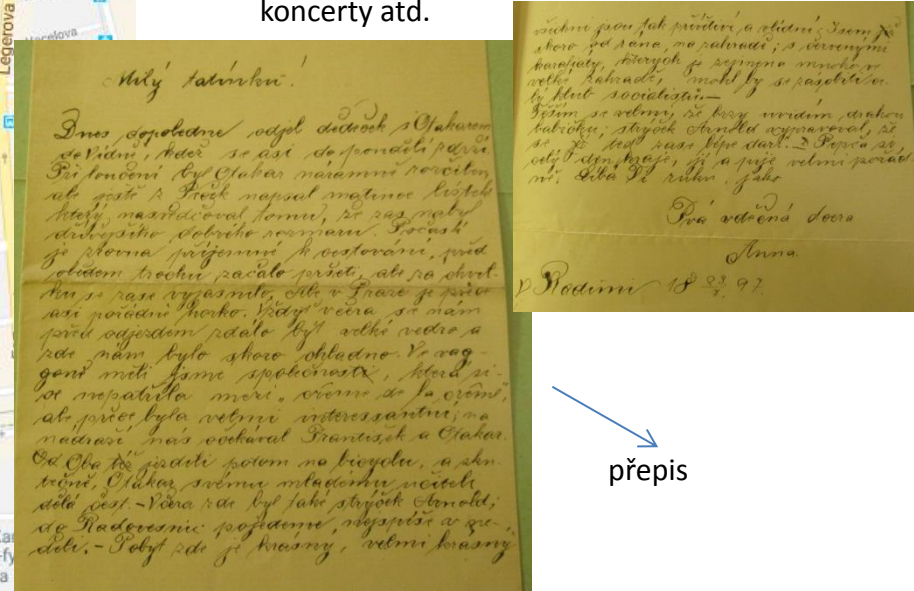 Legerova
koncerty atd.
Milý tatínku!
Dnes dopoledne odjel dědeček s Otakarem
do Vídně, kdež se asi do pondělí zdrží.
Při loučení byl Otakar náramně rozčilen,
ale ještě z Peček napsal mamince lístek
který nasvědčoval tomu, že zas nabyl
dřívějšího dobrého rozmaru. Počasí
je zrovna příjemné k cestování, před
obědem trochu začalo pršeti, ale za chvil-
ku se zase vyjasnilo. Ale v Praze je přece
asi pořádné horko. Vždyť včera se nám
před odjezdem zdálo být velké vedro a
zde nám bylo skoro chladno. Ve vag-
goně měli jsme společnost, která si-
ce nepatřila mezi „crême de la crême“,
ale přece byla velmi interessantní; na
nádraží nás očekával František a Otakar.
Oba též jezdili potom na bicyclu, a sku-
tečně, Otakar svému mladému učiteli
dělá čest. – Včera zde byl také strýček Arnold;
do Radovesnic pojedeme, nejspíše v ne-
děli. – Pobyt zde je krásný, velmi krásný
všichni jsou tak přívětiví a vlídní; Jsem
skoro od rána, na zahradě; s červenými
karafiáty, kterých je zejmena mnoho v
velké zahradě, mohl by se zásobiti ce-
lý klub socialistů. –
Těším se velmi, že brzy uvidím drahou
babičku; strýček Arnold vypravoval, že
se jí teď zase lépe daří. – Pepča si
celý den hraje, jí a pije velmi pořád
ně. Líbá Ti ruku, jako
Tvá vděčná dcera
Anna.
V Radimi 18 97.
přepis